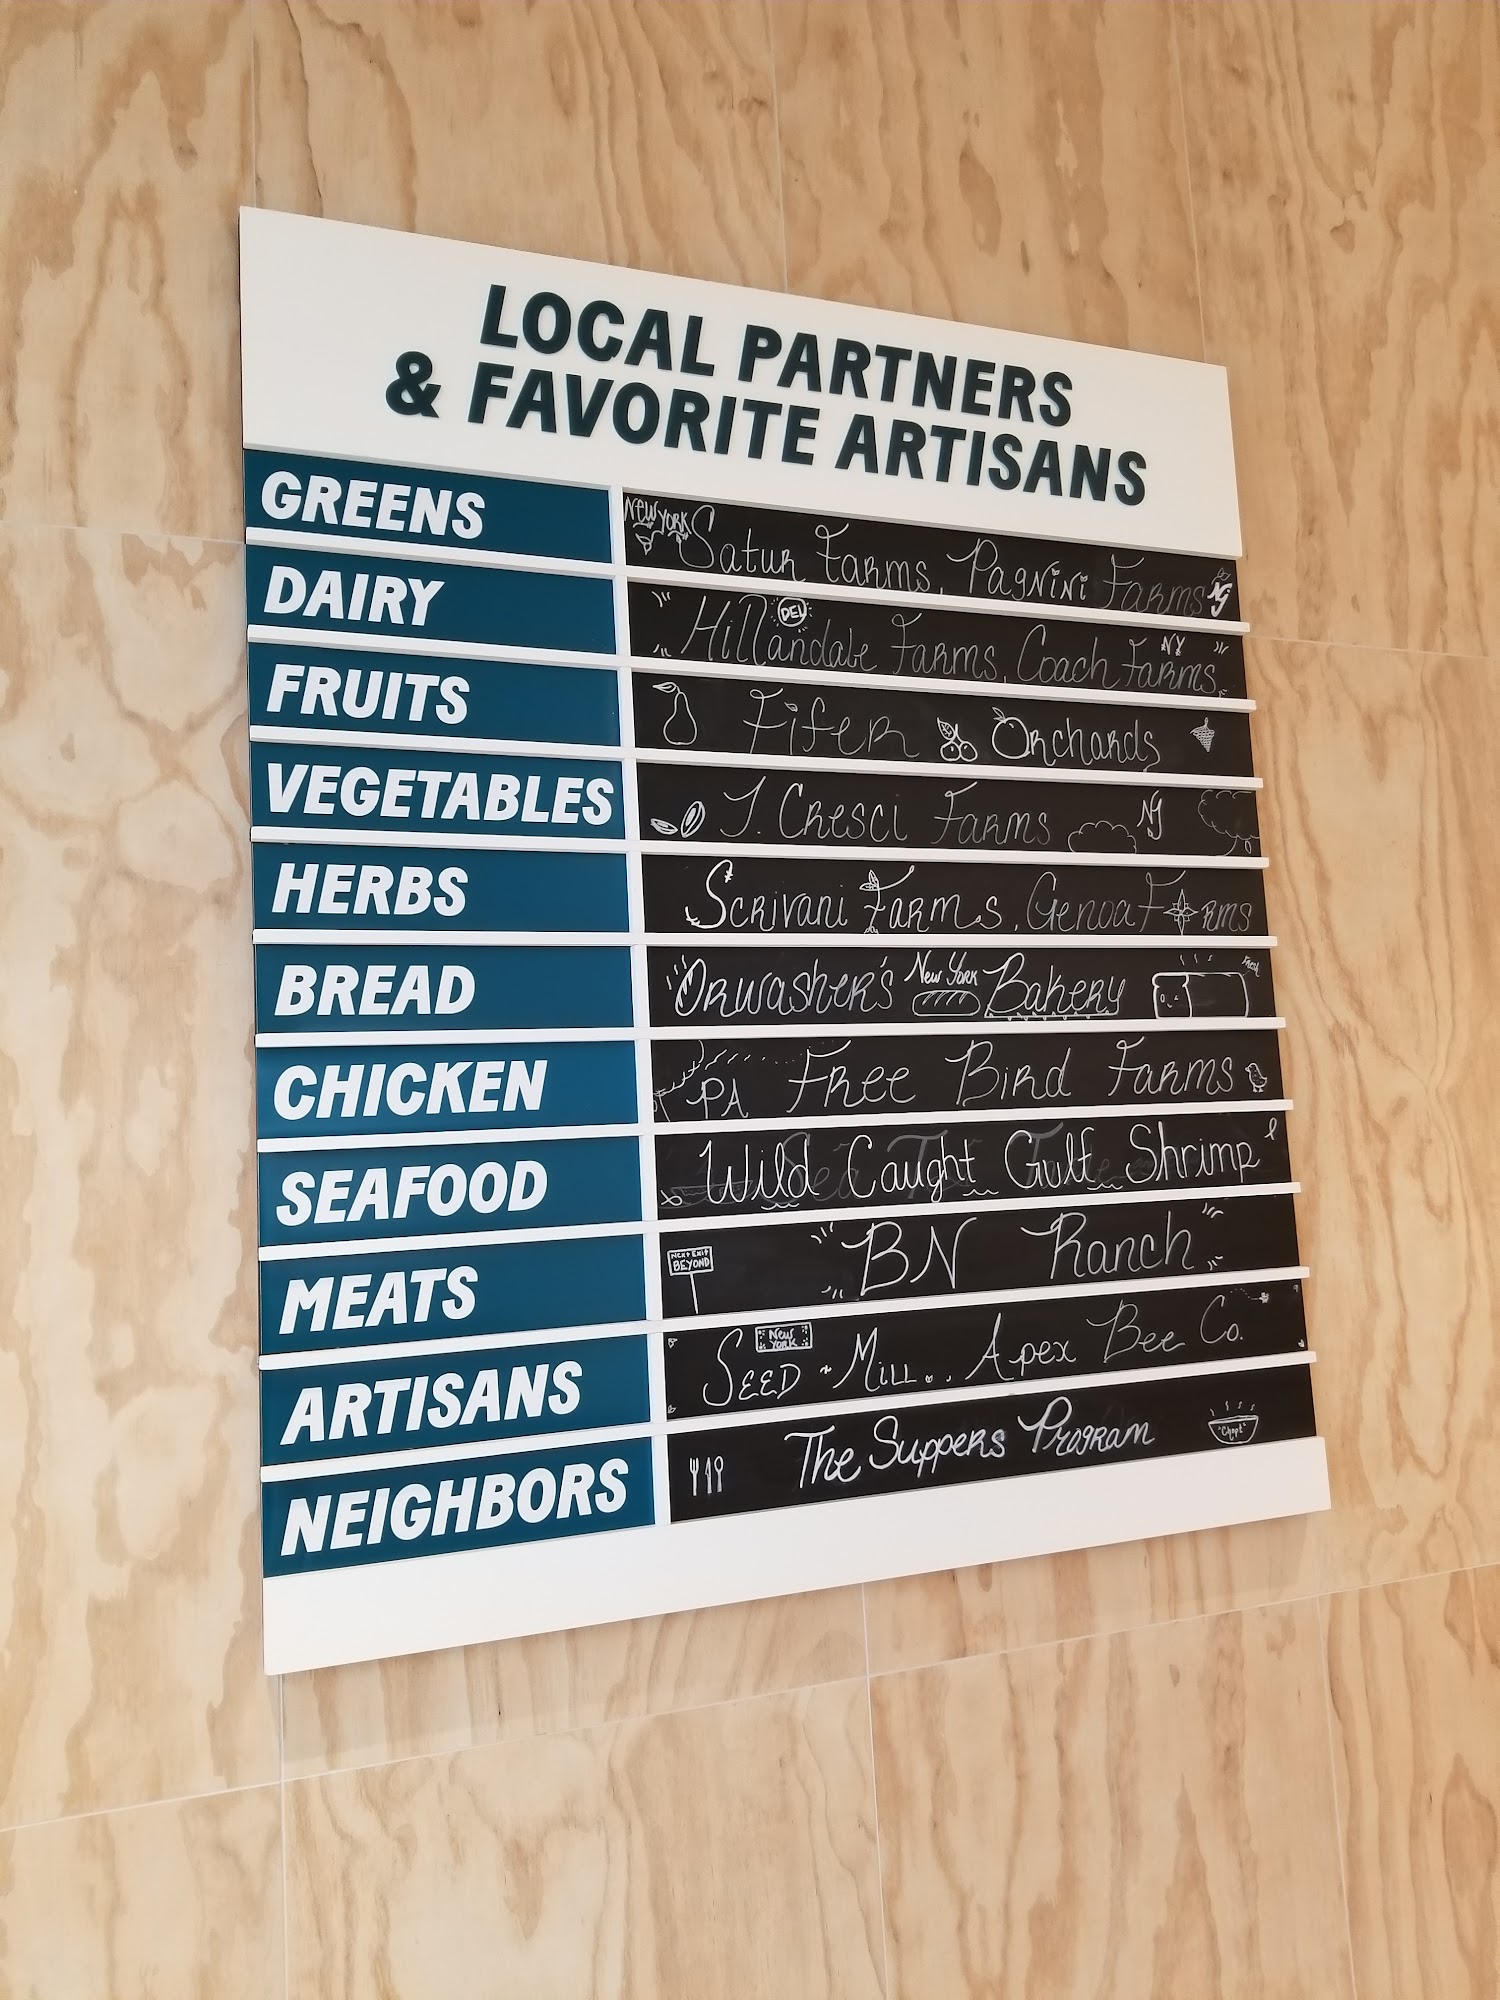 LOCAL PARTNERS
& FAVORITE ARTISANS
GREENS
NEW YORK Satur Farms, Pagnini Farms NJ
DAIRY
Hillandale Farms, Coach Farms
DEL
NY
FRUITS
Fifer Orchards
VEGETABLES
J. Cresci Farms NJ
HERBS
Scrivani Farms, Genoa Farms
BREAD
Orwasher's New York Bakery
FRESH
CHICKEN
PA Free Bird Farms
SEAFOOD
Wild Caught Gulf Shrimp
MEATS
NEXT EXIT
BEYOND
BN Ranch
ARTISANS
SEED + MILL.. Apex Bee Co.
NEW
YORK
NEIGHBORS
The Suppers Program
"Chopt"